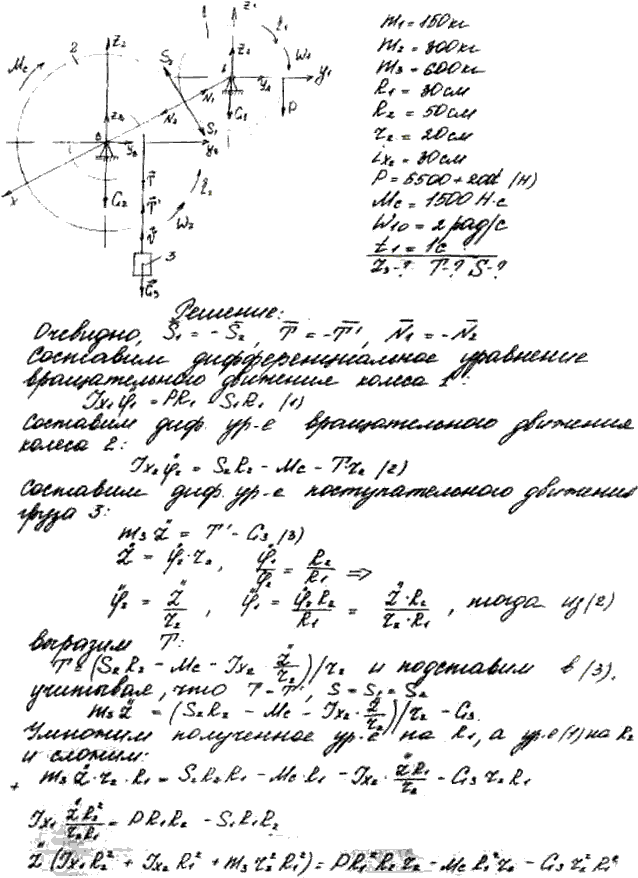 m₁ = 150 кг
m₂ = 300 кг
m₃ = 600 кг
R₁ = 30 см
R₂ = 50 см
r₂ = 20 см
ix₂ = 30 см
P = 5500 + 200t (Н)
Mc = 1500 Н·с
W₁₀ = 2 рад/с
t₁ = 1c
z₃-? T-? S-?
Решение:
Очевидно, S̄₁ = - S̄₂, T̄ = -T̄', N̄₁ = -N̄₂
Составим дифференциальное уравнение
вращательного движения колеса 1:
Jx₁φ̈₁ = PR₁ S₁R₁ (1)
Составим диф. ур-е вращательного движения
колеса 2:
Jx₂φ̈₂ = S₂R₂ - Mc - T·r₂ (2)
Составим диф. ур-е поступательного движения
груза 3:
m₃z̈ = T' - G₃ (3)
z̈ = φ̈₂·r₂, φ̈₁/φ̈₂ = R₂/R₁ =>
φ̈₂ = z̈/r₂, φ̈₁ = φ̈₂R₂/R₁ = z̈·R₂/r₂·R₁, тогда из (2)
выразим T:
T = (S₂R₂ - Mc - Jx₂ · z̈/r₂)/r₂ и подставим в (3),
учитывая, что T = T', S = S₁ = S₂
m₃z̈ = (S₂R₂ - Mc - Jx₂· z̈/r₂)/r₂ - G₃
Умножим полученное ур-е на R₁, а ур-е (1) на R₂
и сложим:
+ m₃z̈·r₂·R₁ = S₂R₂R₁ - Mc·R₁ - Jx₂· z̈R₁/r₂ - G₃r₂R₁
Jx₁ z̈R₂²/r₂R₁ = PR₁R₂ - S₁R₁R₂
z̈(Jx₁R₂² + Jx₂R₁² + m₃r₂²R₁²) = PR₁²R₂r₂ - McR₁²r₂ - G₃r₂²R₁²
Mc
2
z₂
S₂
1
z₁
W₁
y₁
P
G₁
N₁
N₂
S₁
y₂
x
G₂
T̄
T̄'
W₂
3
Ḡ₃